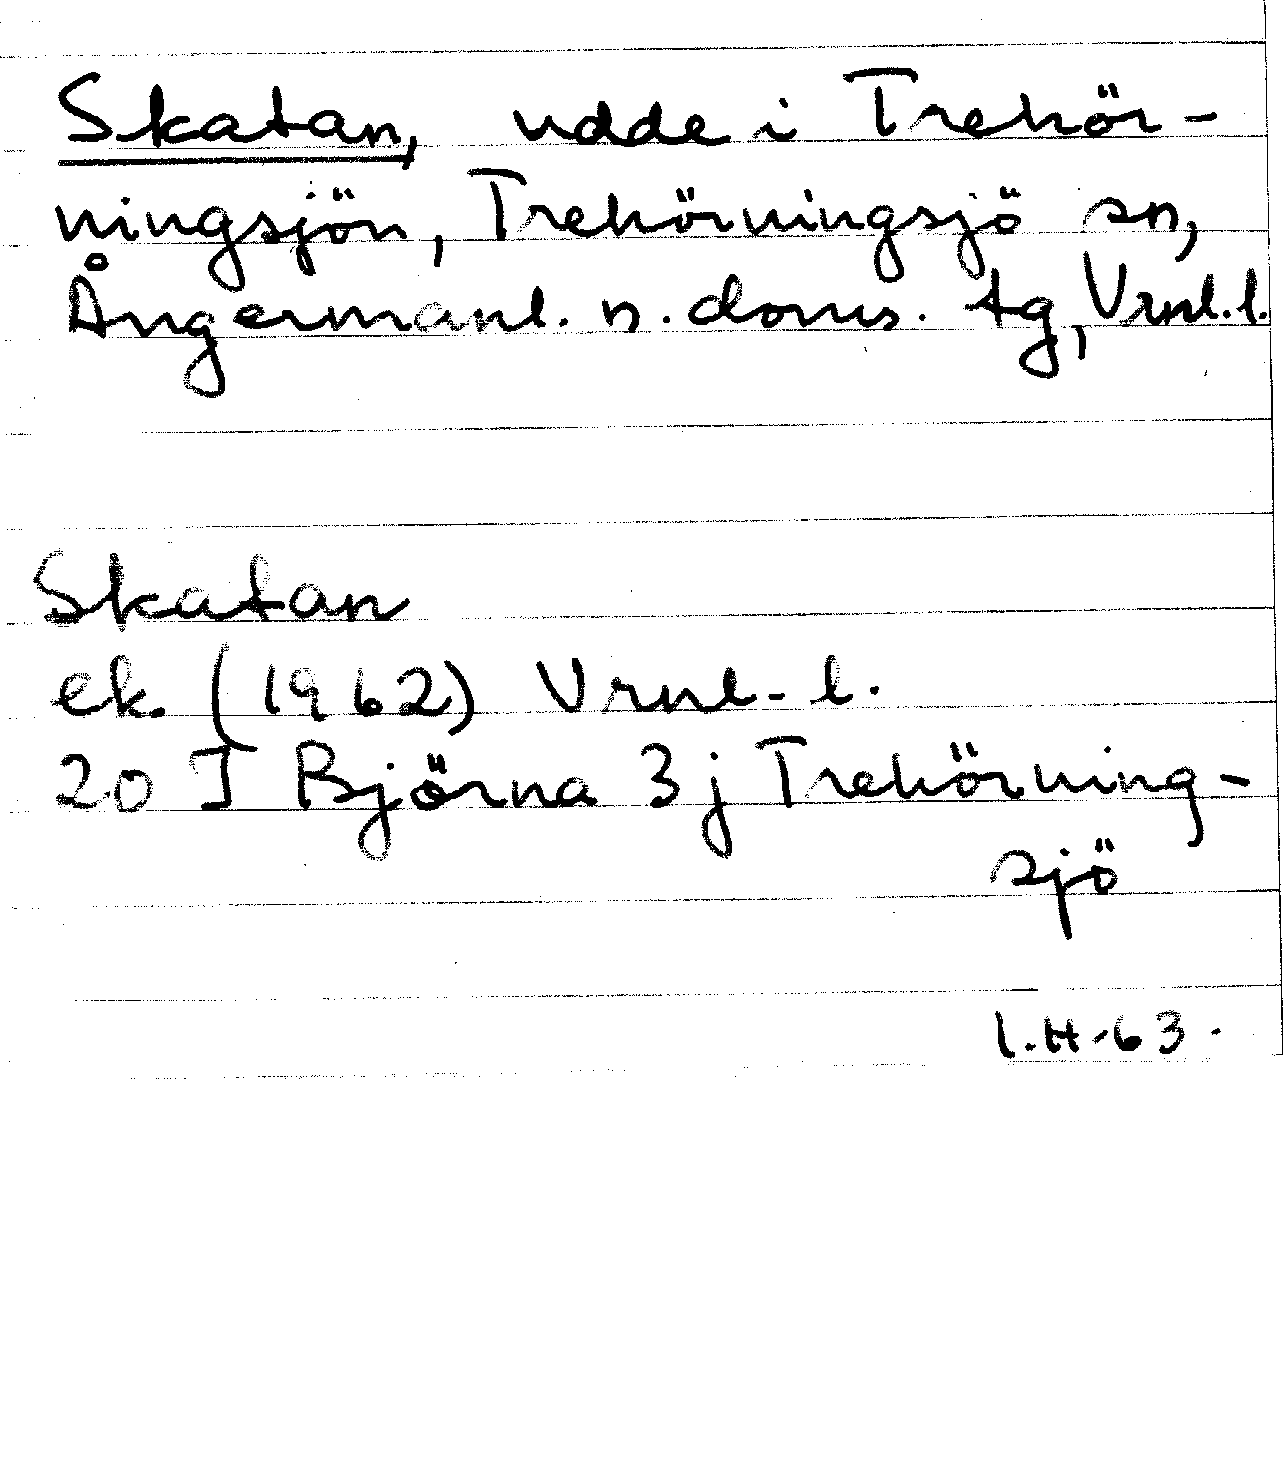 Skatan, udde i Trehör-
ningsjön, Trehörningsjö sn,
Ångermanl. n. doms. tg, Vrnl. l.
Skatan
ek. (1962) Vrnl. l.
20 I Björna 3 j Trehörning-
sjö
I.H. 63.